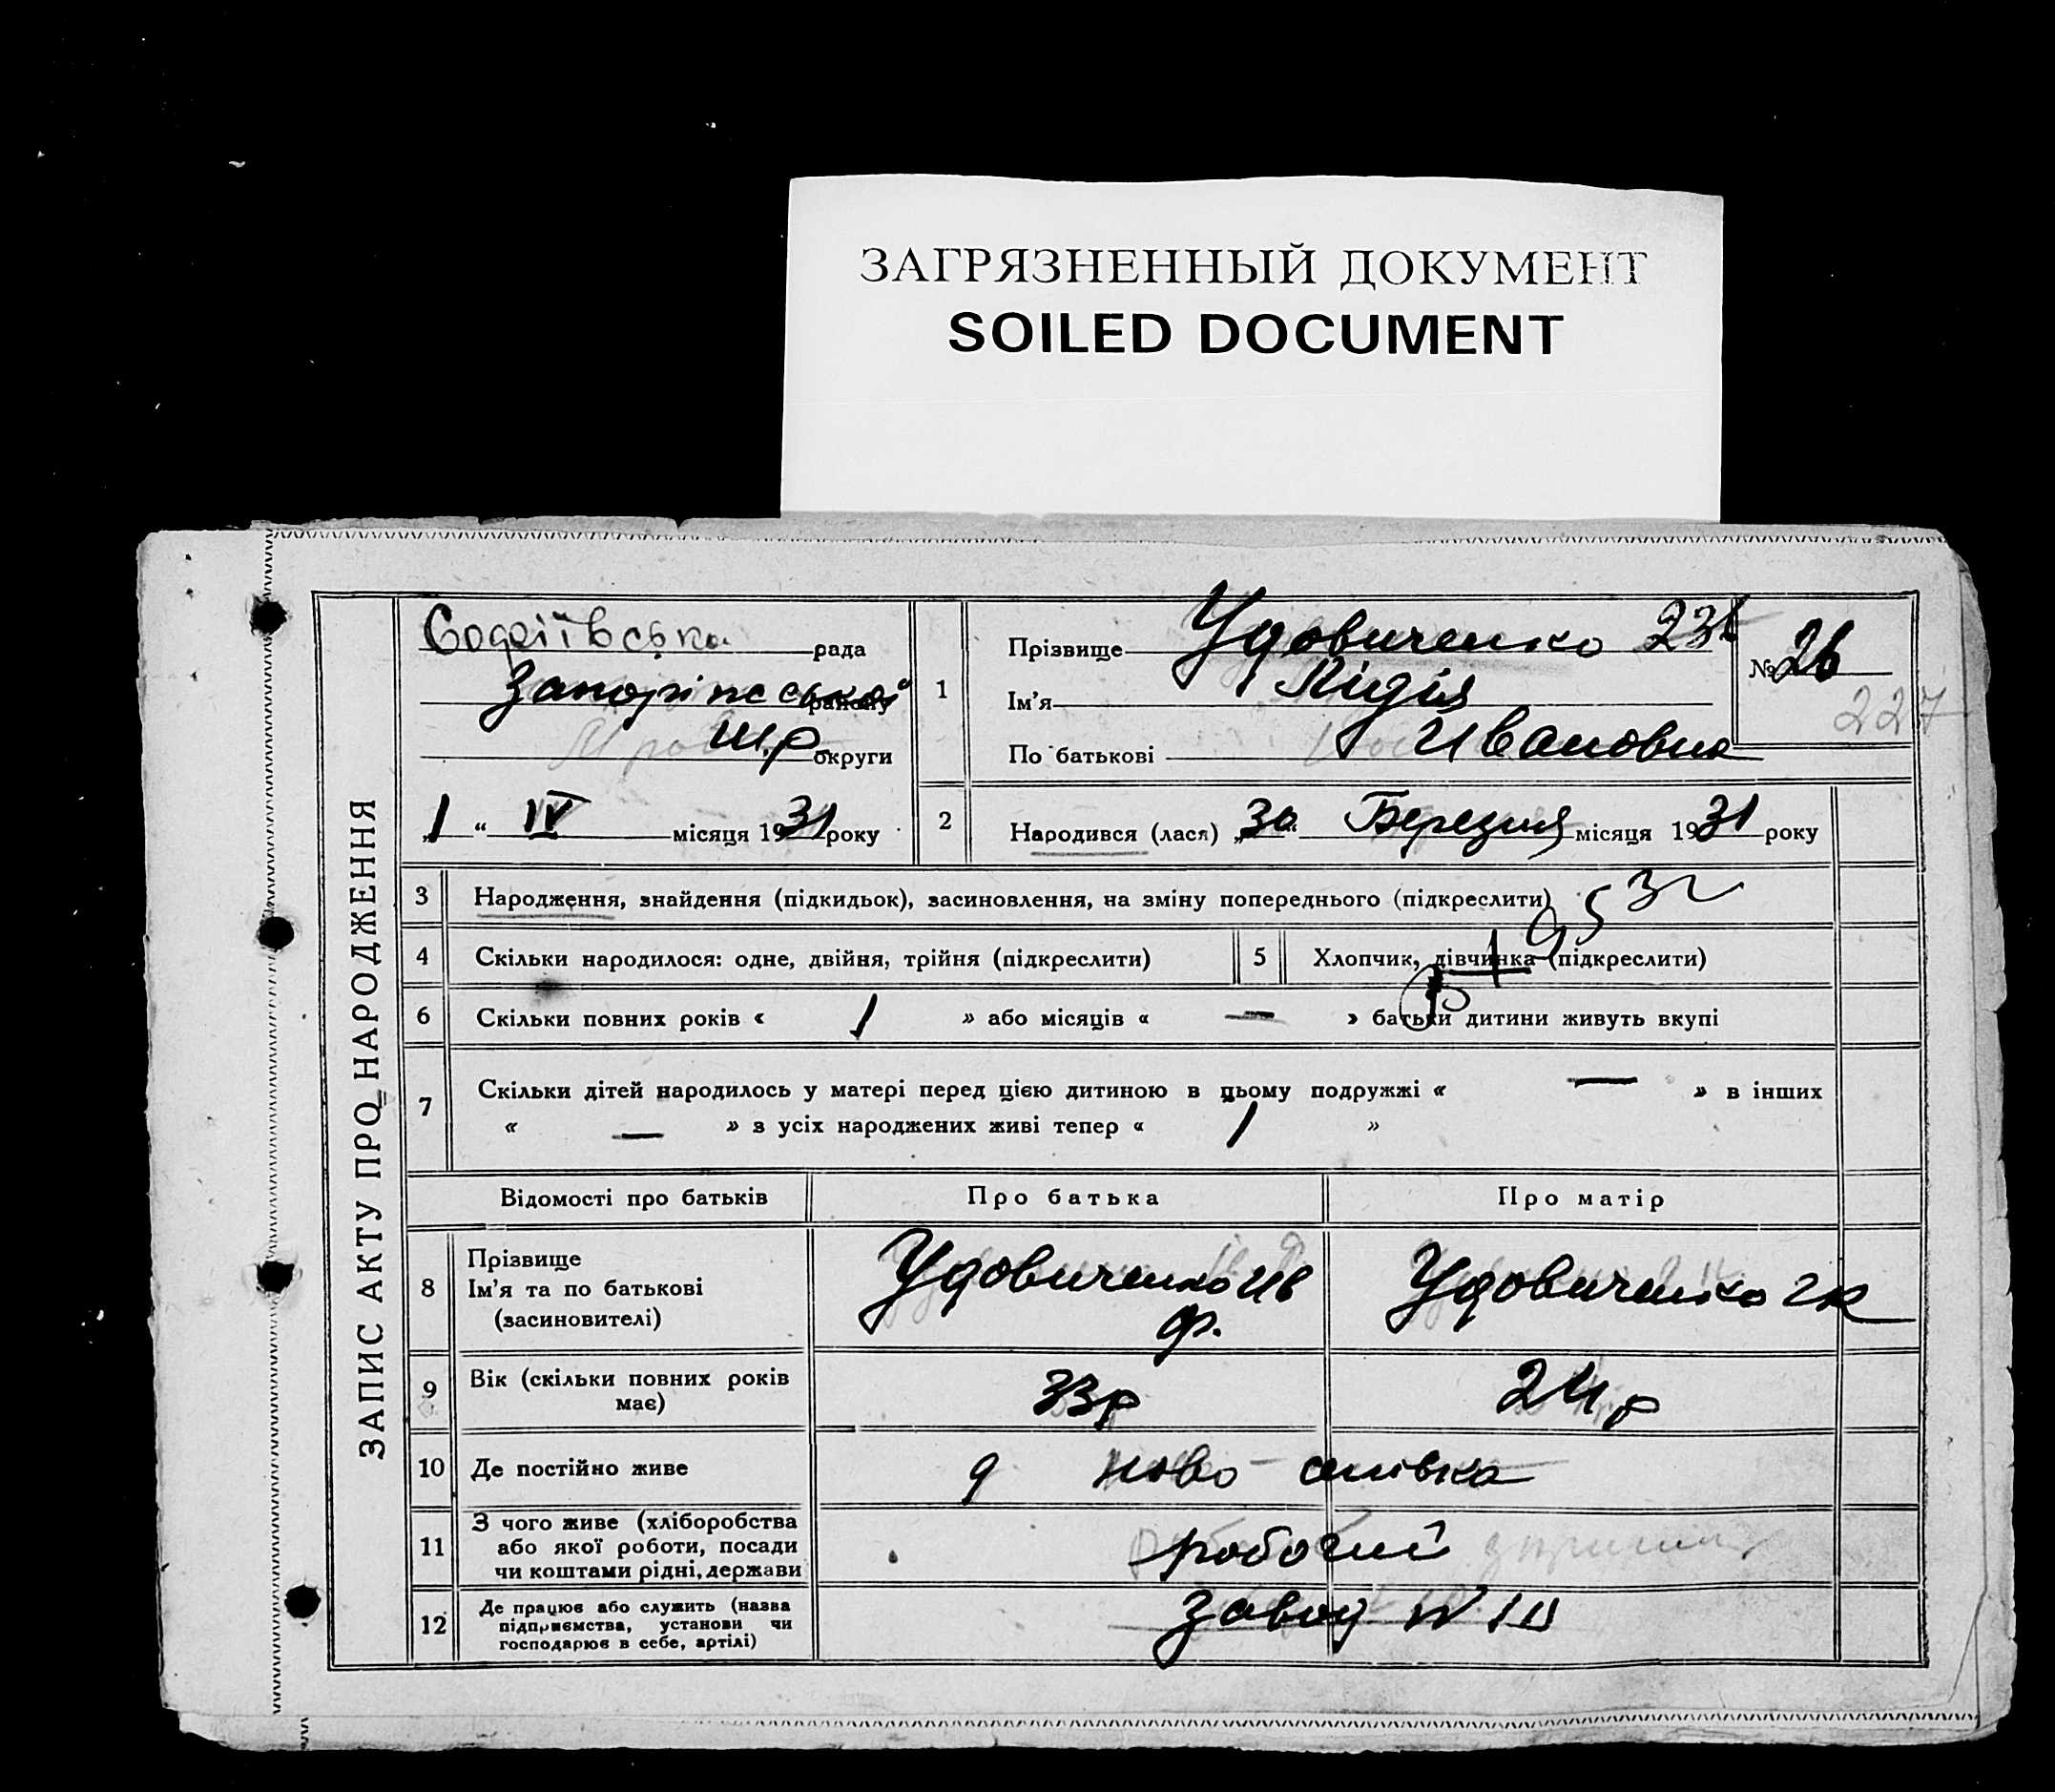 ЗАГРЯЗНЕННЫЙ ДОКУМЕНТ
SOILED DOCUMENT
ЗАПИС АКТУ ПРО НАРОДЖЕННЯ
Софіївська рада
Запоріжської району
округи
„1“ IV місяця 1931 року
1
Прізвище Удовиченко
Ім'я Лідія
По батькові Ивановна
№ 26
227
2 Народився (лася) „30“ Березня місяця 1931 року
3 Народження, знайдення (підкидьок), засиновлення, на зміну попереднього (підкреслити)
4 Скільки народилося: одне, двійня, трійня (підкреслити) 5 Хлопчик, дівчинка (підкреслити)
6 Скільки повних років « 1 » або місяців « — » батьки дитини живуть вкупі
7 Скільки дітей народилось у матері перед цією дитиною в цьому подружжі « — » в інших
« — » з усіх народжених живі тепер « 1 »
Відомості про батьків Про батька Про матір
8 Прізвище
Ім'я та по батькові
(засновителі)
Удовиченко Ив
Ф.
Удовиченко
9 Вік (скільки повних років
має)
33р 24р
10 Де постійно живе
ново
11 З чого живе (хліборобства
або якої роботи, посади
чи коштами рідні, держави
робочий
12 Де працює або служить (назва
підприємства, установи чи
господарює в себе, артілі)
Завод №